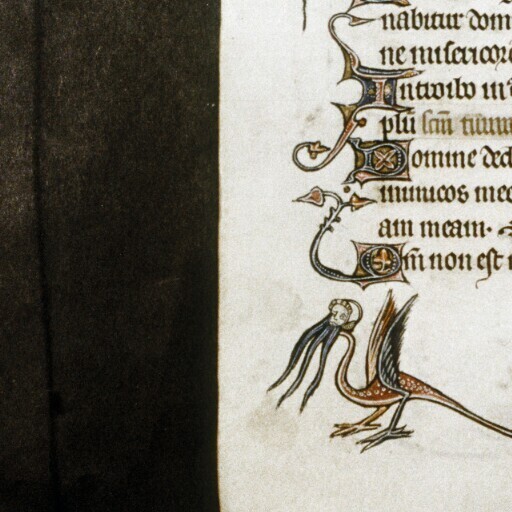 nabitur dom
ne misericord
Introibo in
plū scm̄ tuum
Domine ded
inimicos meo
am meam.
Qm̄ non est